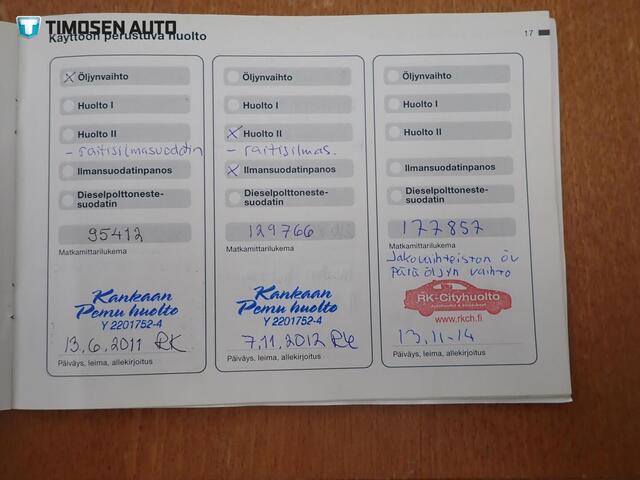 TIMOSEN AUTO
Käyttöön perustuva huolto
17
Öljynvaihto
Huolto I
Huolto II
- raitisilmasuodatin
Ilmansuodatinpanos
Dieselpolttoneste-
suodatin
95412
Matkamittarilukema
Kankaan
Pemu huolto
Y 2201752-4
13.6.2011 RK
Päiväys, leima, allekirjoitus
Öljynvaihto
Huolto I
Huolto II
- raitisilmas.
Ilmansuodatinpanos
Dieselpolttoneste-
suodatin
129766
Matkamittarilukema
Kankaan
Pemu huolto
Y 2201752-4
7.11.2012 RK
Päiväys, leima, allekirjoitus
Öljynvaihto
Huolto I
Huolto II
Ilmansuodatinpanos
Dieselpolttoneste-
suodatin
177857
Matkamittarilukema
Jakovaihteiston öv
Perä öljyn vaihto
RK-Cityhuolto
www.rkch.fi
13.11-14
Päiväys, leima, allekirjoitus